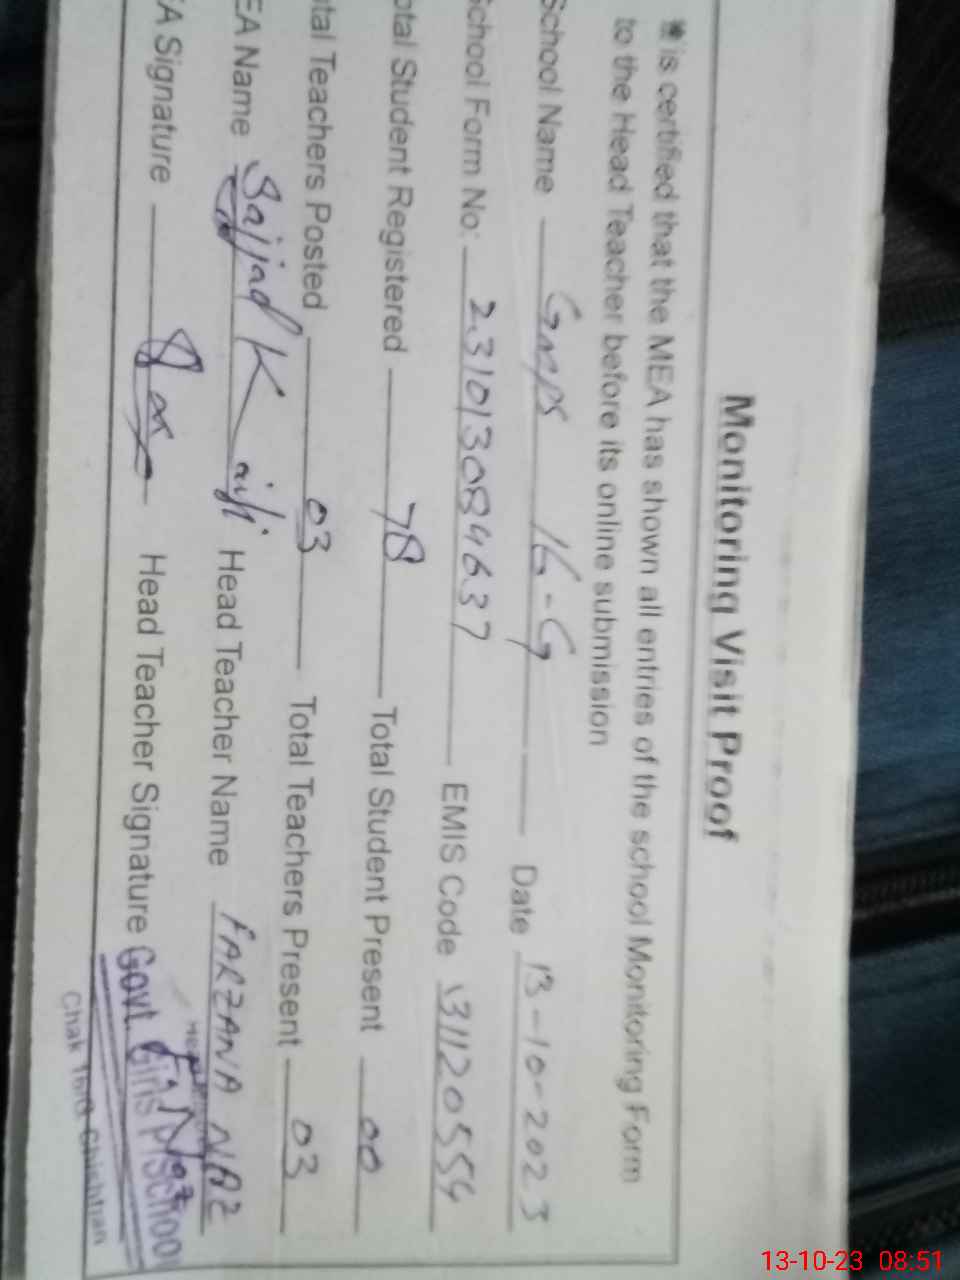 Monitoring Visit Proof
is certified that the MEA has shown all entries of the school Monitoring Form
to the Head Teacher before its online submission
School Name Ggps 16-G Date 13-10-2023
School Form No: 231013084637 EMIS Code 31120554
otal Student Registered 78 Total Student Present 00
otal Teachers Posted 03 Total Teachers Present 03
EA Name Sajjad K Head Teacher Name FARZANA NAZ
EA Signature Head Teacher Signature
Govt. Girls P/School
Chak 16/G Chishtian
13-10-23 08:51